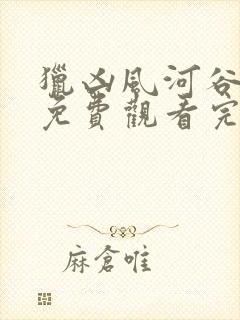 獵凶風河谷
免費觀看完
麻倉唯